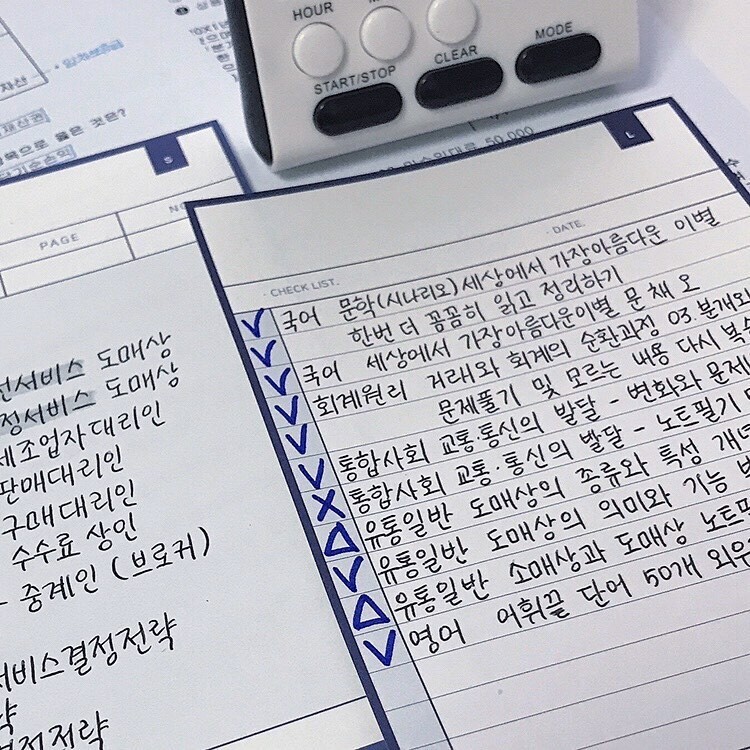 HOUR
START/STOP
CLEAR
MODE
50,000
S
PAGE
도매상
정서비스 도매상
제조업자대리인
판매대리인
구매대리인
수수료 상인
중계인 (브로커)
서비스결정전략
L
DATE.
CHECK LIST.
국어 문학(시나리오) 세상에서 가장아름다운 이별
한번 더 꼼꼼히 읽고 정리하기
국어 세상에서 가장아름다운이별 문 채 오
회계원리 거래와 회계의 순환과정 03 분개와
문제풀기 및 모르는 내용 다시
통합사회 교통·통신의 발달 - 변화와 문제
통합사회 교통·통신의 발달 - 노트필기
유통일반 도매상의 종류와 특성
유통일반 도매상의 의미와 기능
유통일반 소매상과 도매상
영어 어휘끝 단어 50개